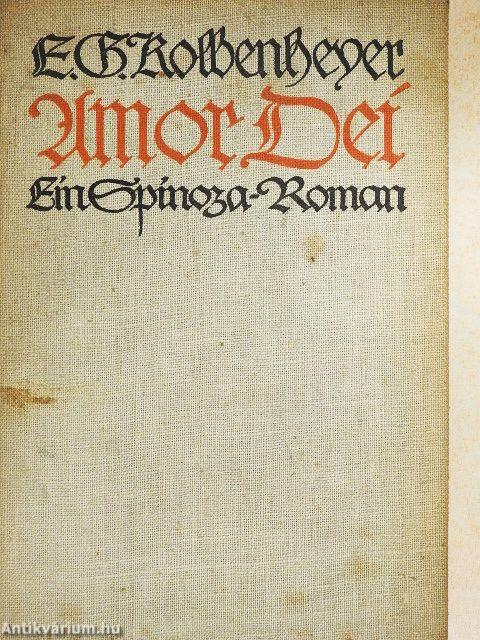 E.G.Kolbenheyer
Amor Dei
Ein Spinoza-Roman
Antikvárium.hu